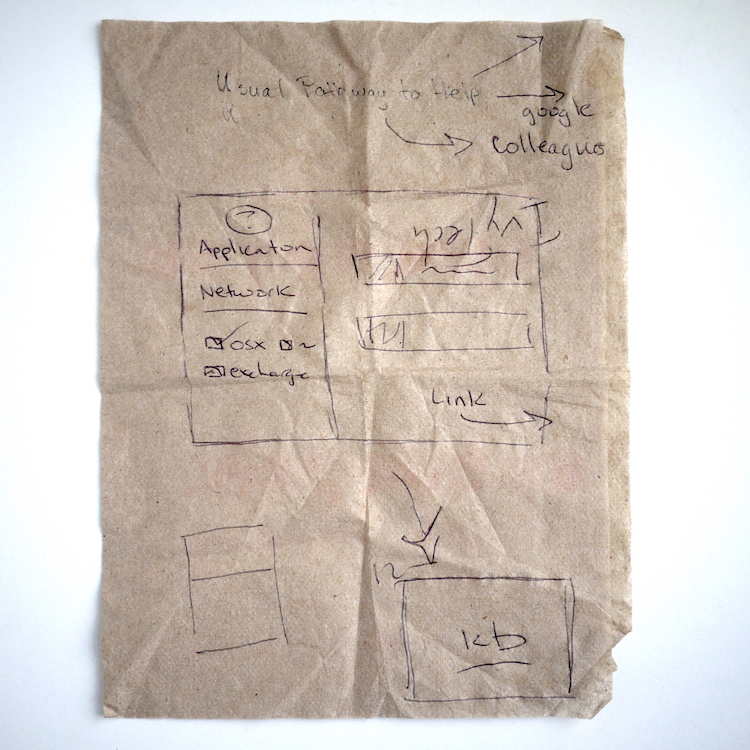 Usual Pathway to Help
google
Colleagus
?
Ivy Tech
Application
Network
osx
exchange
Link
kb